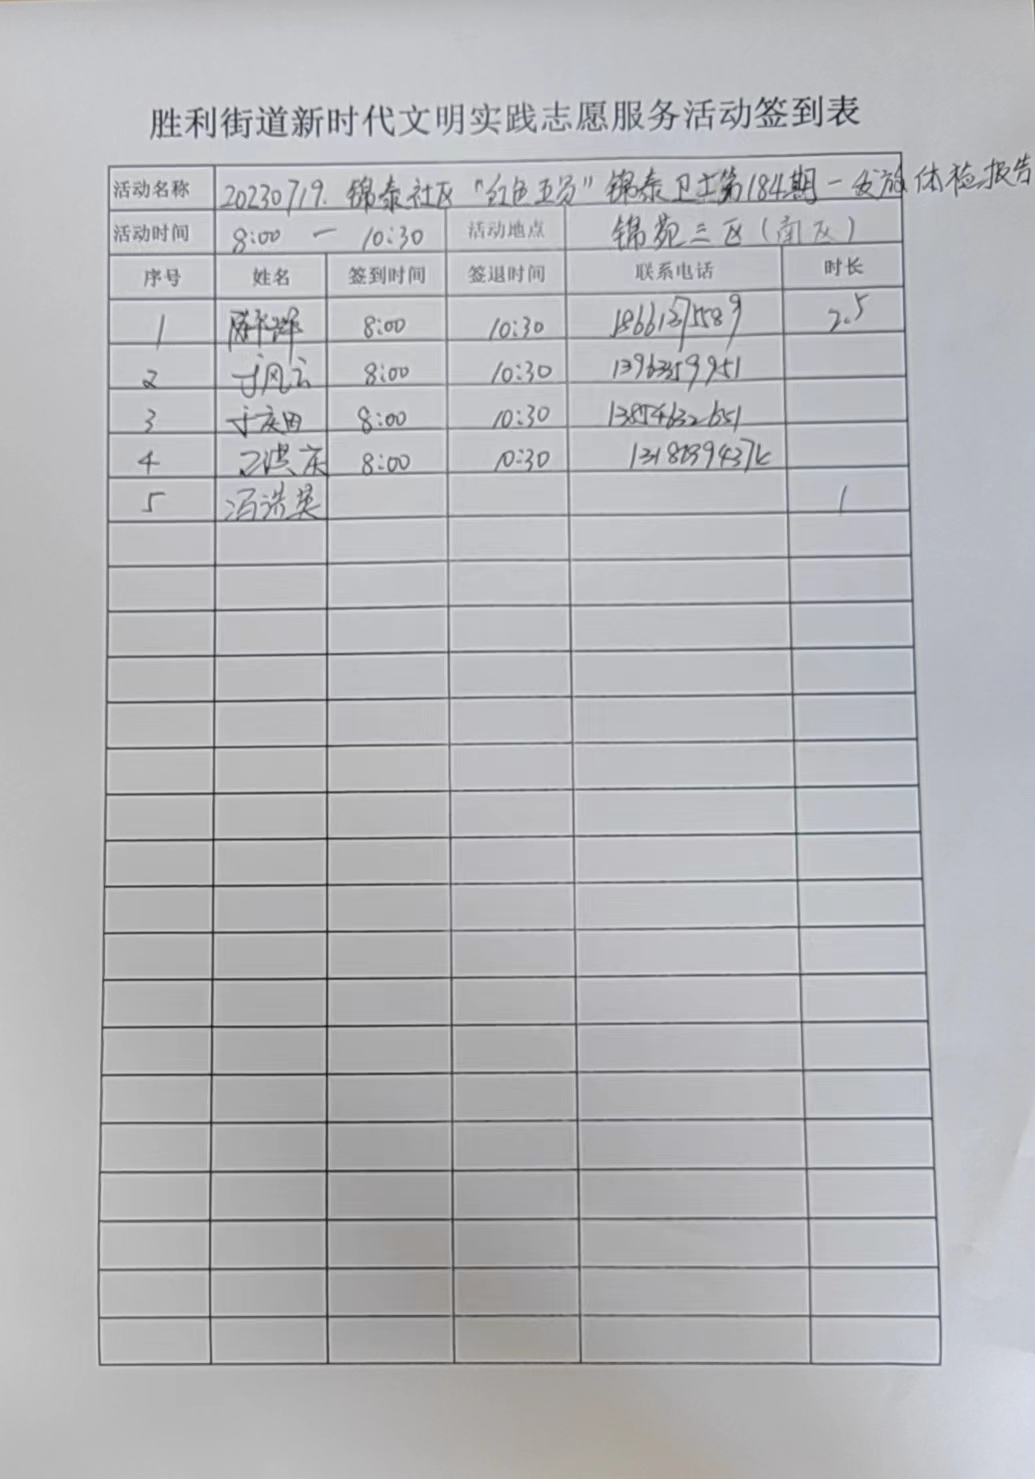 胜利街道新时代文明实践志愿服务活动签到表
活动名称 20230719. 锦泰社区“红色五分”锦泰卫士第184期-发放体检报告
活动时间 8:00 — 10:30 活动地点 锦苑三区(南区)
序号 姓名 签到时间 签退时间 联系电话 时长
1 8:00 10:30 2.5
2 于风云 8:00 10:30 13963359951
3 于庆田 8:00 10:30 13854632651
4 8:00 10:30
5 冯洪英 1